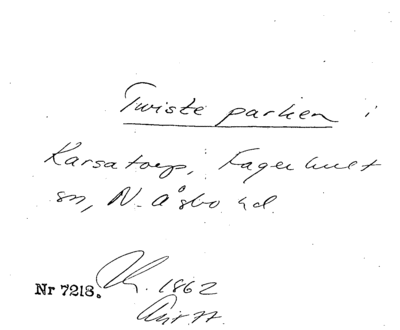 Tvistē parken i
Karsatorp, Fagerhult
sn, N. Åsbo hd.
Nr 7218. 1862